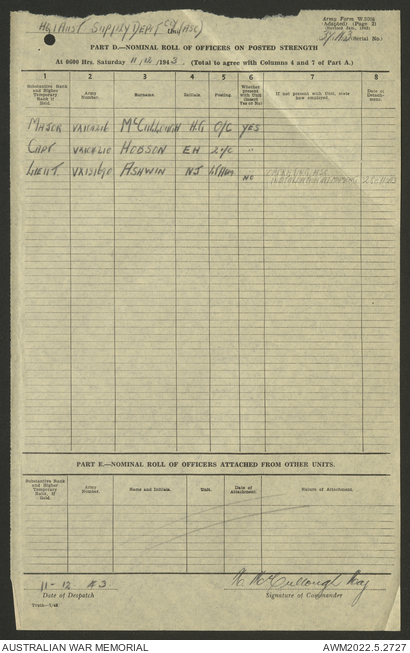 HQ 1 Aust Supply Depot Coy (AASC) Unit
Army Form W.3008
Adapted) (Page 2)
(Revised Jan., 1943)
Serial No.)
PART D.—NOMINAL ROLL OF OFFICERS ON POSTED STRENGTH
At 0600 Hrs. Saturday 11/12/1943. (Total to agree with Columns 4 and 7 of Part A.)
1 2 3 4 5 6 7 8
Substantive Rank and Higher Temporary Rank if Held. Army Number. Surname. Initials. Posting. Whether present with Unit (insert Yes or No) If not present with Unit, state how employed. Date of Detachment.
MAJOR McCULLOUGH H.G O/C YES
CAPT HOBSON EH 2i/c "
LIEUT. ASHWIN NJ NO
PART E.—NOMINAL ROLL OF OFFICERS ATTACHED FROM OTHER UNITS.
Substantive Rank and Higher Temporary Rank, if Held. Army Number. Name and Initials. Unit. Date of Attachment. Nature of Attachment.
11-12 43 H McCullough Maj
Date of Despatch Signature of Commander
AUSTRALIAN WAR MEMORIAL AWM2022.5.2727